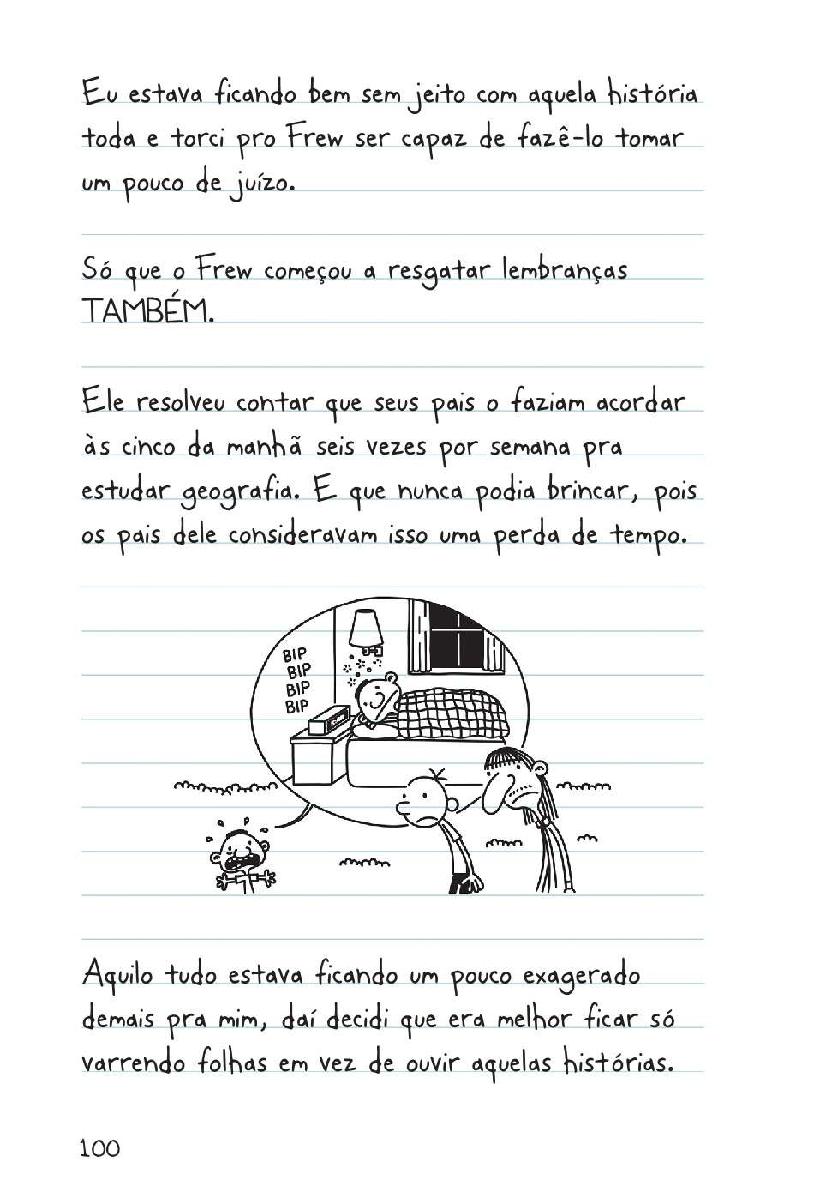 Eu estava ficando bem sem jeito com aquela história
toda e torci pro Frew ser capaz de fazê-lo tomar
um pouco de juízo.
Só que o Frew começou a resgatar lembranças
TAMBÉM.
Ele resolveu contar que seus pais o faziam acordar
às cinco da manhã seis vezes por semana pra
estudar geografia. E que nunca podia brincar, pois
os pais dele consideravam isso uma perda de tempo.
BIP
BIP
BIP
BIP
Aquilo tudo estava ficando um pouco exagerado
demais pra mim, daí decidi que era melhor ficar só
varrendo folhas em vez de ouvir aquelas histórias.
100